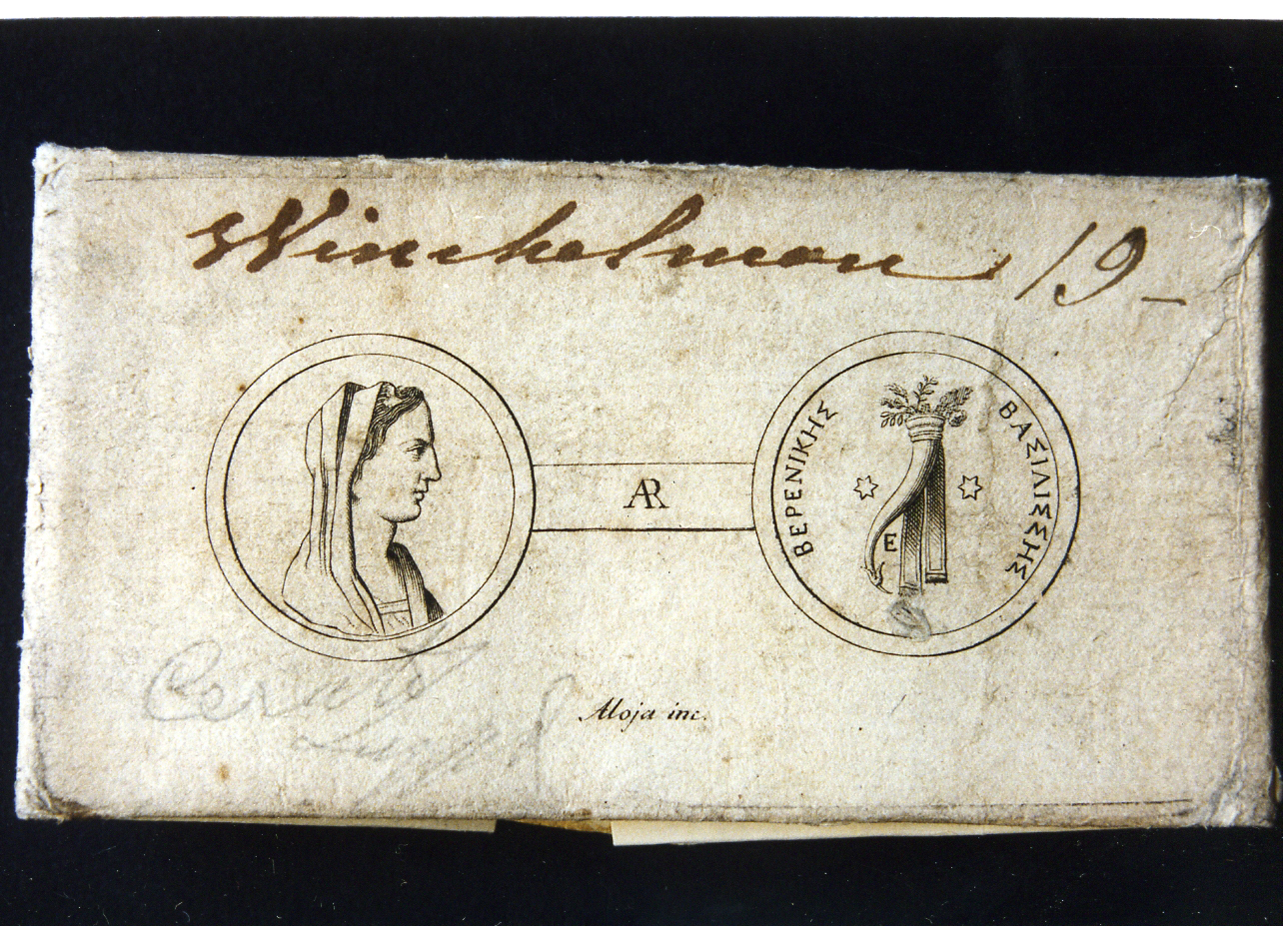 Winckelman 19-
ΒΕΡΕΝΙΚΗΣ
ΒΑΣΙΛΙΣΣΗΣ
E
AR
Aloja inc.